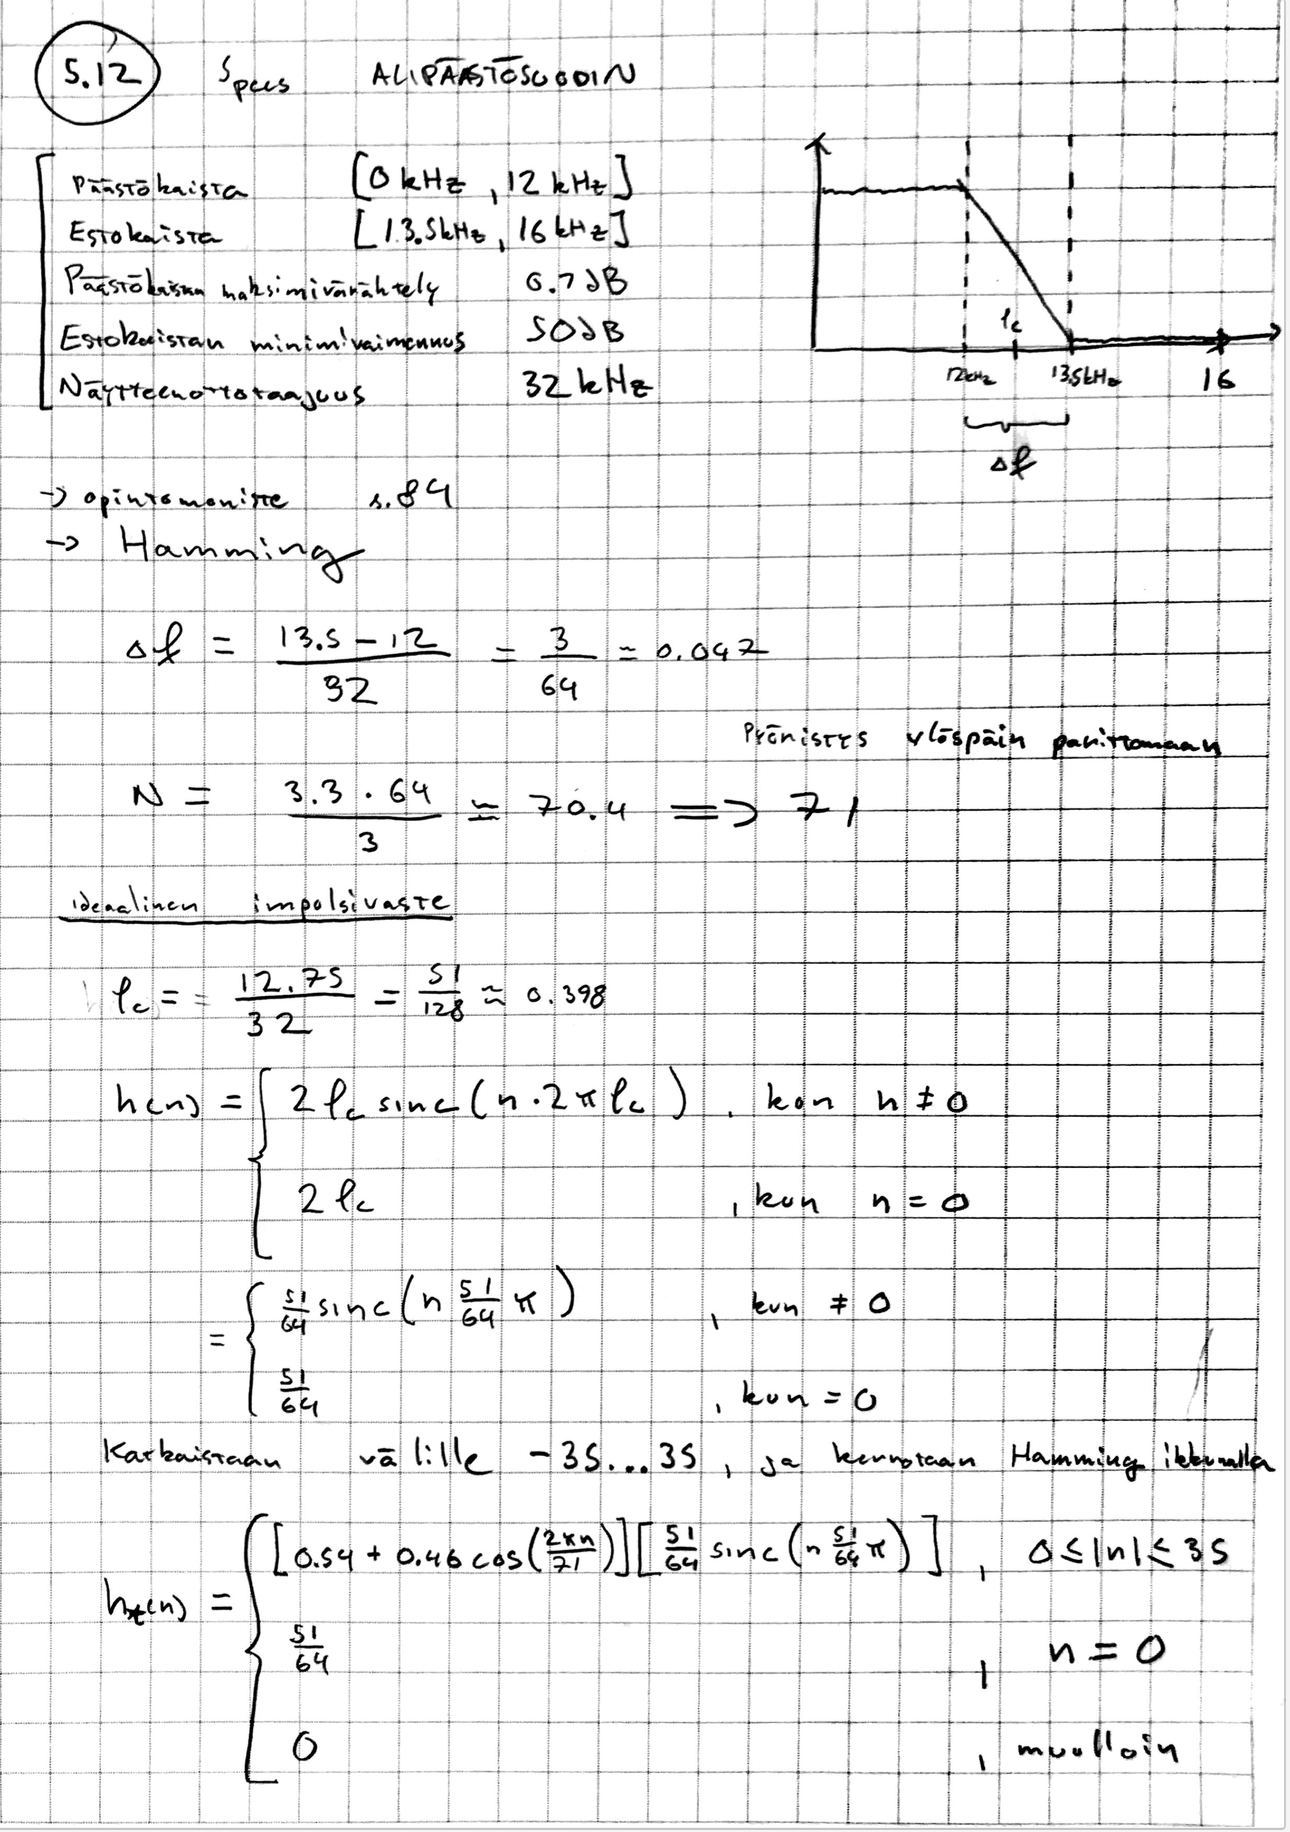 5.12 Specs ALIPÄÄSTÖSUODIN
Päästökaista [0 kHz, 12 kHz]
Estokaista [13.5kHz, 16 kHz]
Päästökaistan maksimivärähtely 0.7 dB
Estokaistan minimivaimennus 50dB
Näytteenottotaajuus 32 kHz
fc
12kHz 13.5kHz 16
Δf
→ opintomoniste s.84
→ Hamming
Δf = (13.5 - 12)/32 = 3/64 ≈ 0.047
Pyöristys ylöspäin parittomaan
N = (3.3 · 64)/3 ≈ 70.4 => 71
ideaalinen impulsivaste
fc = = 12.75/32 = 51/128 ≈ 0.398
h(n) = { 2fc sinc(n·2πfc), kun n ≠ 0
2fc, kun n = 0
= { 51/64 sinc(n 51/64 π), kun ≠ 0
51/64, kun = 0
Katkaistaan välille -35...35, ja kerrotaan Hamming ikkunalla
ht(n) = { [0.54 + 0.46 cos(2πn/71)][51/64 sinc(n 51/64 π)], 0 ≤ |n| ≤ 35
51/64, n = 0
0, muulloin